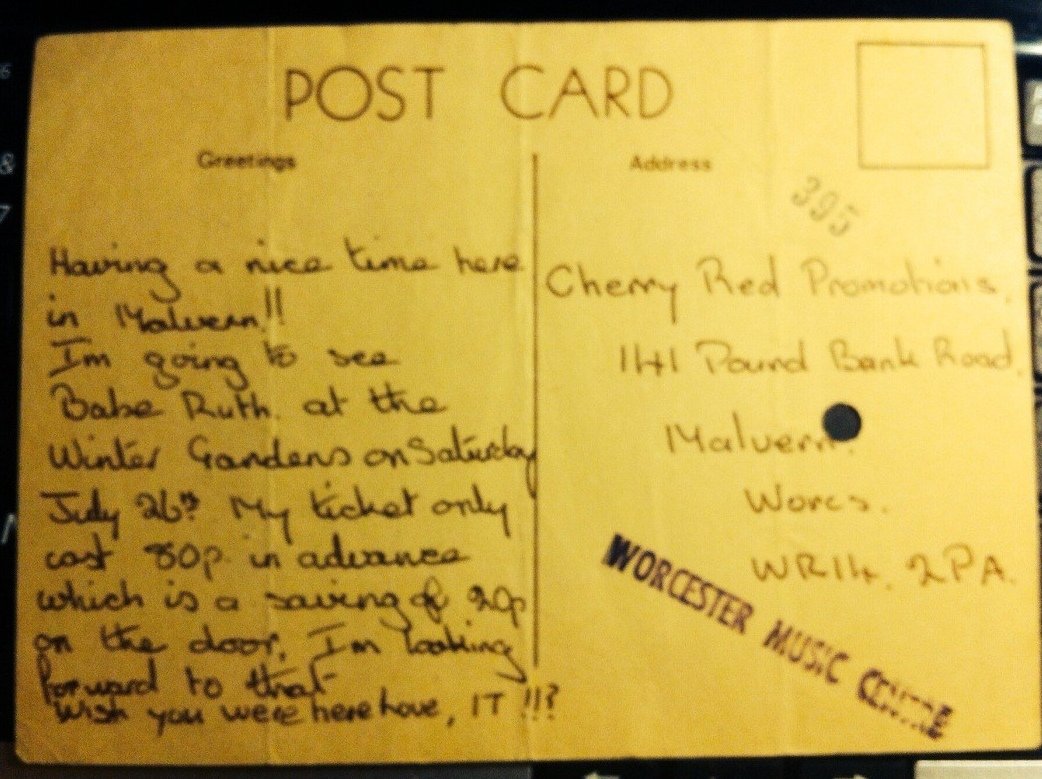 POST CARD
Greetings
Having a nice time here
in Malvern!!
Im going to see
Babe Ruth. at the
Winter Gardens on Saturday
July 26th My ticket only
cost 80p. in advance
which is a saving of 20p
on the door. Im looking
forward to that
Wish you were here love, IT !!?
Address
395
Cherry Red Promotions.
141 Pound Bank Road.
Malvern.
Worcs.
WR14. 2PA.
WORCESTER MUSIC CENTRE